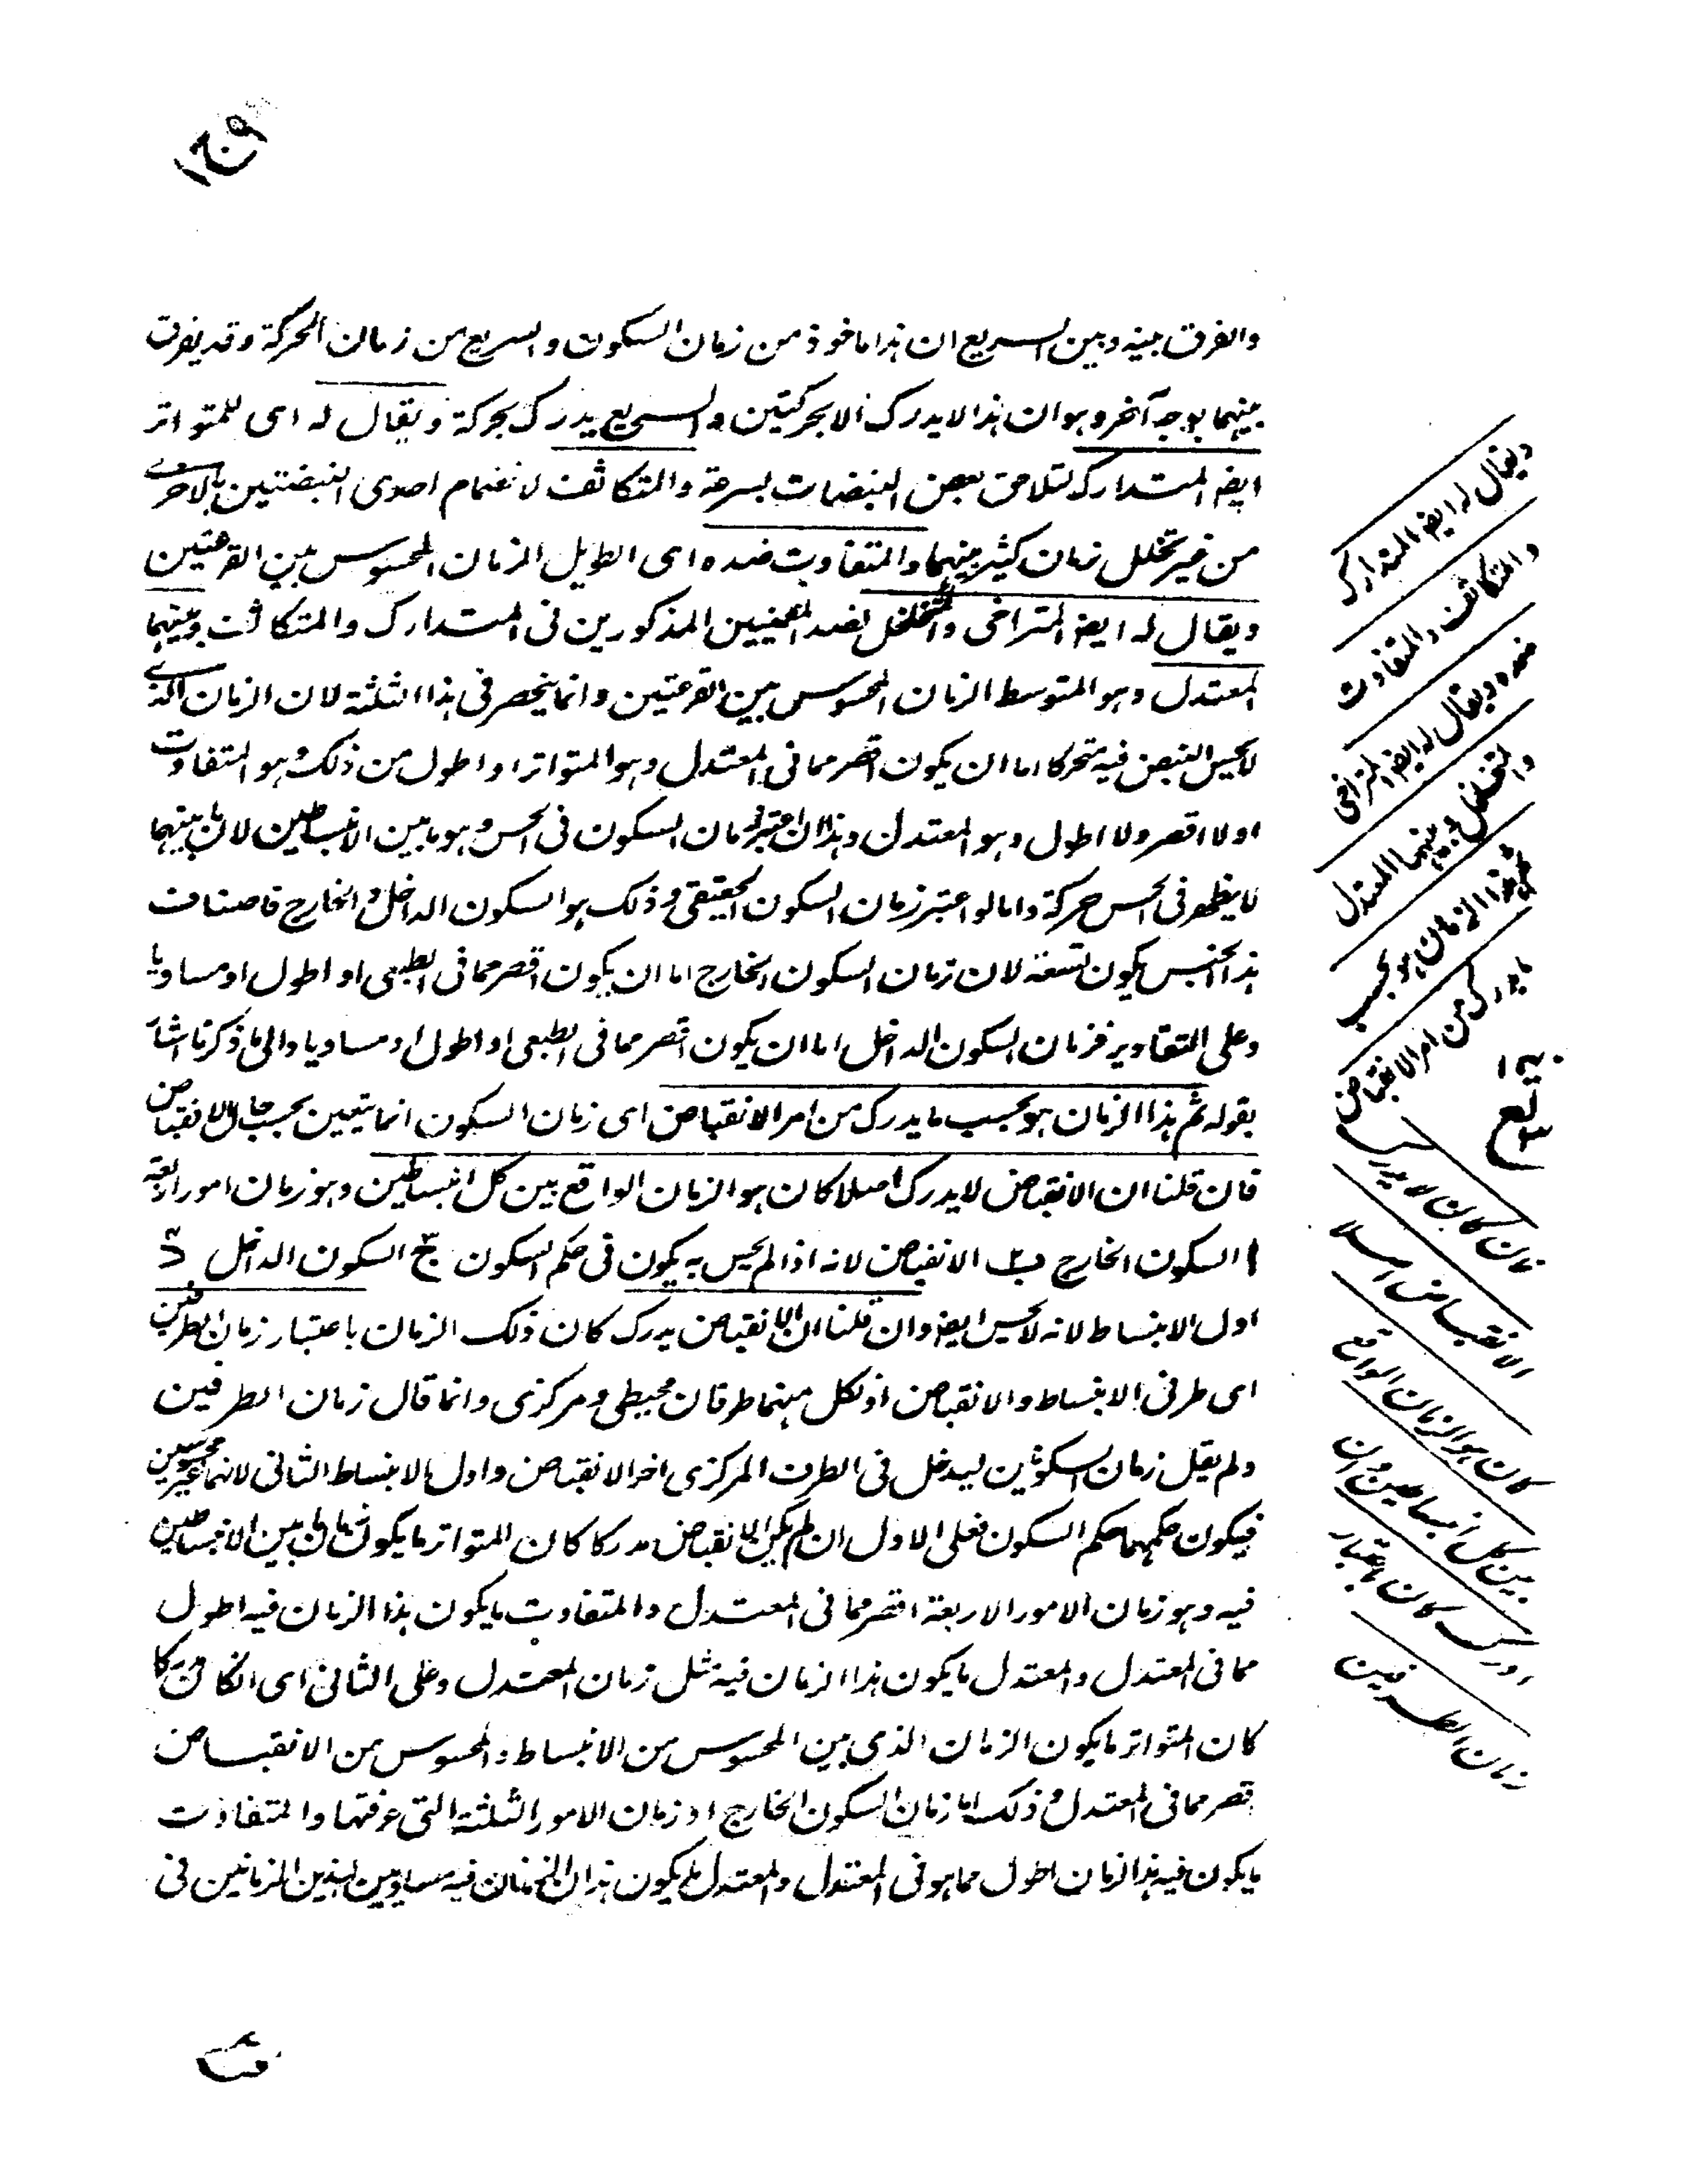 والفرق بينه وبين السريع ان هذا ماخوذ من زمان السكون والسريع من زمان الحركة وقد يفرق
بينهما بوجه آخر وهو ان هذا لا يدرك الا بحركتين والسريع يدرك بحركة ويقال له اى للمتواتر
ايضا المتدارك لتلاحق بعض النبضات بسرعة والمتكاثف لانضمام احدى النبضتين بالاخرے
من غير تخلل زمان كثير بينهما والمتفاوت ضده اى الطويل الزمان المحسوس بين القرعتين
ويقال له ايضا المتراخى والمتخلخل لضد المعنيين المذكورين فى المتدارك والمتكاثف وبينهما
المعتدل وهو المتوسط الزمان المحسوس بين القرعتين وانما ينحصر فى هذا الثلثة لان الزمان الذے
لا يحس النبض فيه متحركا اما ان يكون اقصر مما فى المعتدل وهو المتواتر او اطول من ذلك وهو المتفاوت
او لا اقصر ولا اطول وهو المعتدل وهذا ان اعتبر زمان السكون فى الحس وهو ما بين الانبساطين لان ما بينهما
لا يظهر فى الحس حركة واما لو اعتبر زمان السكون الحقيقى وذلك هو السكون الداخل والخارج فاصناف
هذا الجنس يكون تسعة لان زمان السكون الخارج اما ان يكون اقصر مما فى الطبعى او اطول او مساويا
وعلى التقادير فزمان السكون الداخل اما ان يكون اقصر مما فى الطبعى او اطول او مساويا والى ما ذكرنا اشار
بقوله ثم هذا الزمان هو بحسب ما يدرك من امر الانقباض اى زمان السكون انما يتعين بحسب حال الانقباض
فان قلنا ان الانقباض لا يدرك اصلا كان هو الزمان الواقع بين كل انبساطين وهو زمان امور اربعة
ا السكون الخارج ب الانقباض لانه اذا لم يحس به يكون فى حكم السكون ج السكون الداخل د
اول الانبساط لانه لا يحس ايضا وان قلنا ان الانقباض يدرك كان ذلك الزمان باعتبار زمان الطرفين
اى طرفى الانبساط والانقباض اذ لكل منهما طرفان محيطى ومركزى وانما قال زمان الطرفين
ولم يقل زمان السكونين ليدخل فى الطرف المركزى اخر الانقباض واول الانبساط الثانى لانهما غير محسوسين
فيكون حكمهما حكم السكون فعلى الاول ان لم يكن الانقباض مدركا كان المتواتر ما يكون زمان ما بين الانبساطين
فيه وهو زمان الامور الاربعة اقصر مما فى المعتدل والمتفاوت ما يكون هذا الزمان فيه اطول
مما فى المعتدل والمعتدل ما يكون هذا الزمان فيه مثل زمان المعتدل وعلى الثانى اى ان كان مدركا
كان المتواتر ما يكون الزمان الذى بين المحسوس من الانبساط والمحسوس من الانقباض
اقصر مما فى المعتدل وذلك اما زمان السكون الخارج او زمان الامور الثلثة التى عرفتها والمتفاوت
ما يكون فيه هذا الزمان اطول مما هو فى المعتدل والمعتدل ما يكون هذان الزمانان فيه مساويين لهذين الزمانين فى
ويقال له ايضا المتدارك
والمتكاثف والمتفاوت
ضده ويقال له ايضا المتراخى
والمتخلخل وبينهما المعتدل
ثم هذا الزمان هو بحسب
ما يدرك من امر الانقباض
فان كان لا يدرك
الانقباض اصلا
كان هو الزمان الواقع
بين كل انبساطين وان
ادرك كان باعتبار
زمان الطرفين